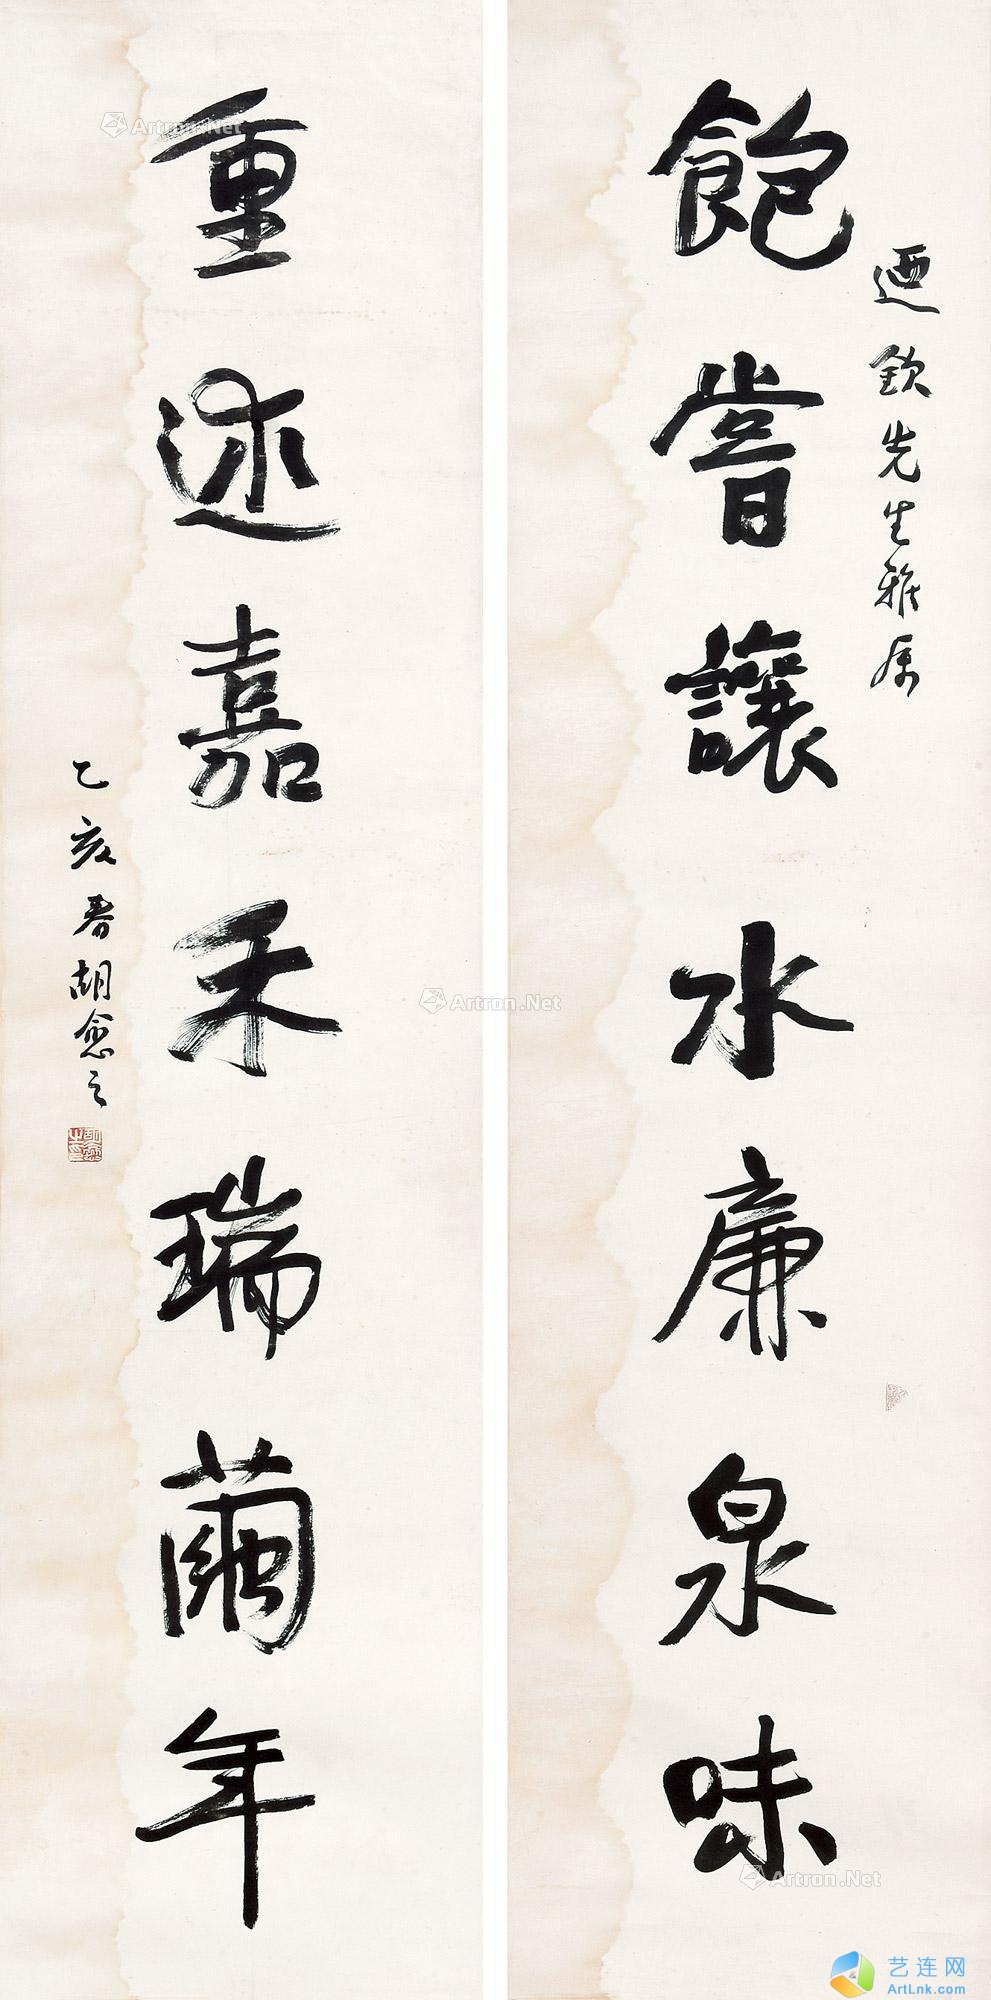 迺欽先生雅属
飽嘗讓水廉泉味
重述嘉禾瑞繭年
乙亥春胡愈之
Artron.Net
Artron.Net
Artron.Net
艺连网
ArtLnk.com